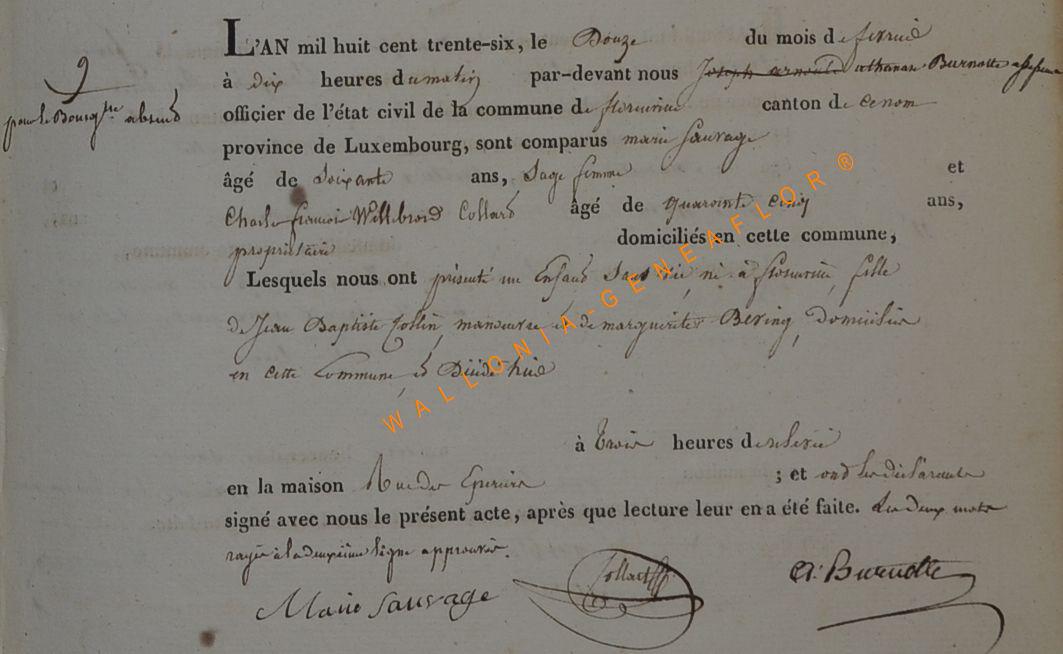 L'AN mil huit cent trente-six, le Douze du mois de fevrier
9
à dix heures du matin par-devant nous Joseph arnould athanase Burnotte assesseur
pour le Bourgtre absend
officier de l'état civil de la commune de florenville canton de
province de Luxembourg, sont comparus marie Sauvage
âgé de Soixante ans, Sage femme et
Charle francois Willebrord Collard âgé de quarainte cinq ans,
propriétaire domiciliés en cette commune,
Lesquels nous ont présenté un Enfand Sans vie, né à florenville, fille
de Jean Baptiste manoeuvre et de marguerite domicilies
en cette Commune, et Décédé hier
à trois heures de relevée
en la maison Rue des ; et ond les déclarants
signé avec nous le présent acte, après que lecture leur en a été faite. Les deux mots
rayés à la deuxième ligne approuvés.
Marie Sauvage Collard A. Burnotte
WALLONIA-GENEAFLOR ®